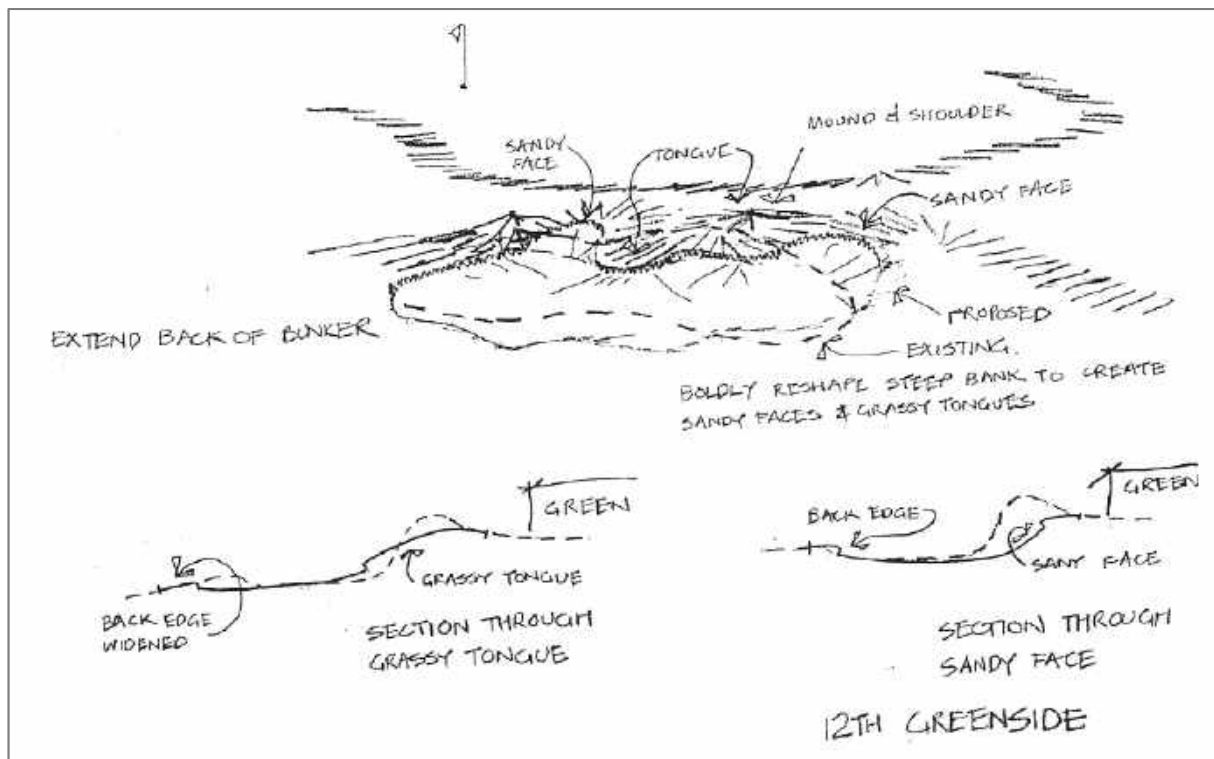 MOUND & SHOULDER
SANDY
FACE
TONGUE
SANDY FACE
PROPOSED
EXTEND BACK OF BUNKER
EXISTING.
BOLDLY RESHAPE STEEP BANK TO CREATE
SANDY FACES & GRASSY TONGUES
GREEN
GRASSY TONGUE
BACK EDGE
WIDENED
SECTION THROUGH
GRASSY TONGUE
GREEN
BACK EDGE
SANY FACE
SECTION THROUGH
SANDY FACE
12TH GREENSIDE